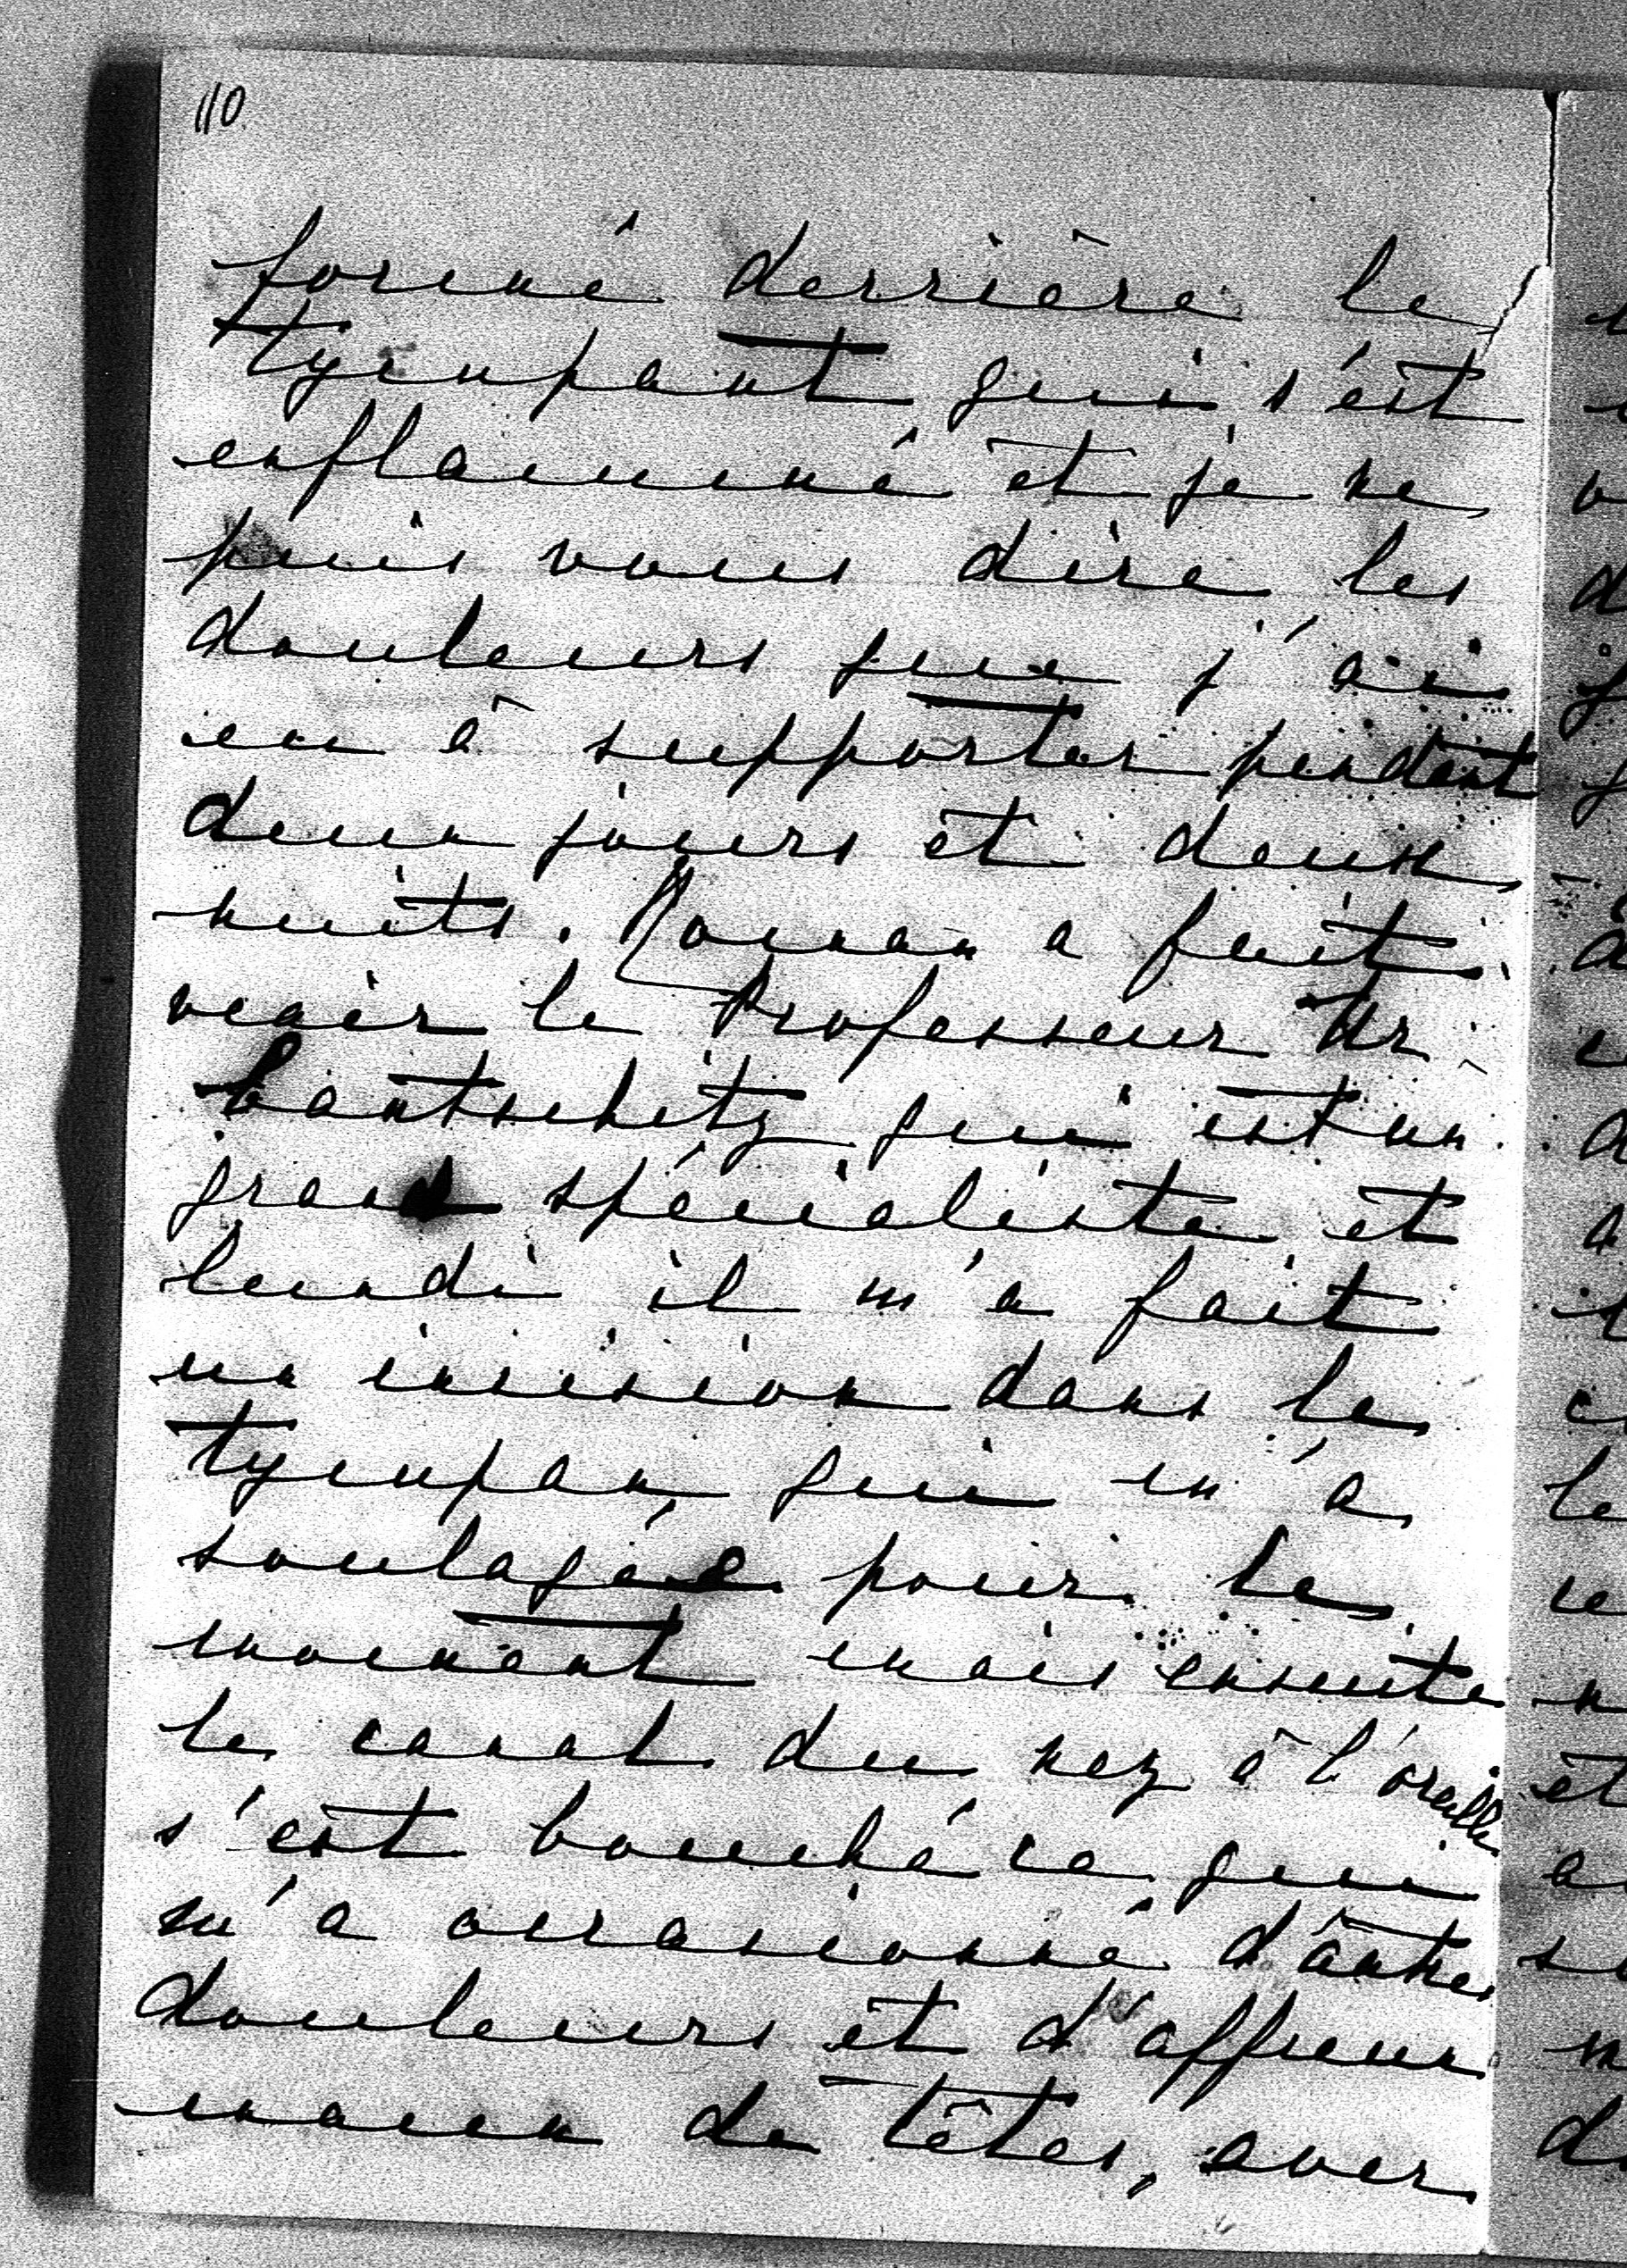 110
formé derrière le
tympant qui s'est
enflammé et je ne
puis vous dire les
douleurs que j'ai
eu à supporter pendant
deux jours et deux
nuits. Maman a fait
venir le Professeur Ur
bantschitz qui est un
grand spécialiste et
lundi il m'a fait
un incision dans le
tympan, qui m'a
soulagée pour le
moment mais ensuite
le canal du nez à l'oreille
s'est bouché ce qui
m'a occasionné d'autres
douleurs et d'affreux
maux de têtes, avec